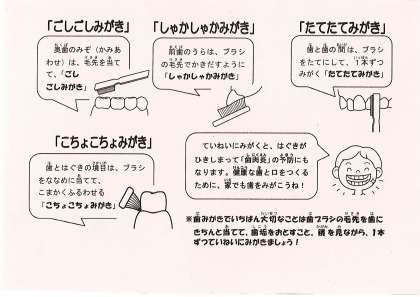 「ごしごしみがき」
奥歯のみぞ（かみあ
わせ）は、毛先を当て
て、「ごし
ごしみがき」
「しゃかしゃかみがき」
前歯のうらは、ブラシ
の毛先でかきだすように
「しゃかしゃかみがき」
「たてたてみがき」
歯と歯の間は、ブラシ
をたてにして、1本ずつ
みがく「たてたてみがき」
「こちょこちょみがき」
歯とはぐきの境目は、ブラシ
をななめに当てて、
こまかくふるわせる
「こちょこちょみがき」
ていねいにみがくと、はぐきが
ひきしまって「歯肉炎」の予防にも
なります。健康な歯と口をつくる
ために、家でも歯をみがこうね！
※歯みがきでいちばん大切なことは歯ブラシの毛先を歯に
きちんと当てて、歯垢をおとすこと。鏡を見ながら、1本
ずつていねいにみがきましょう！